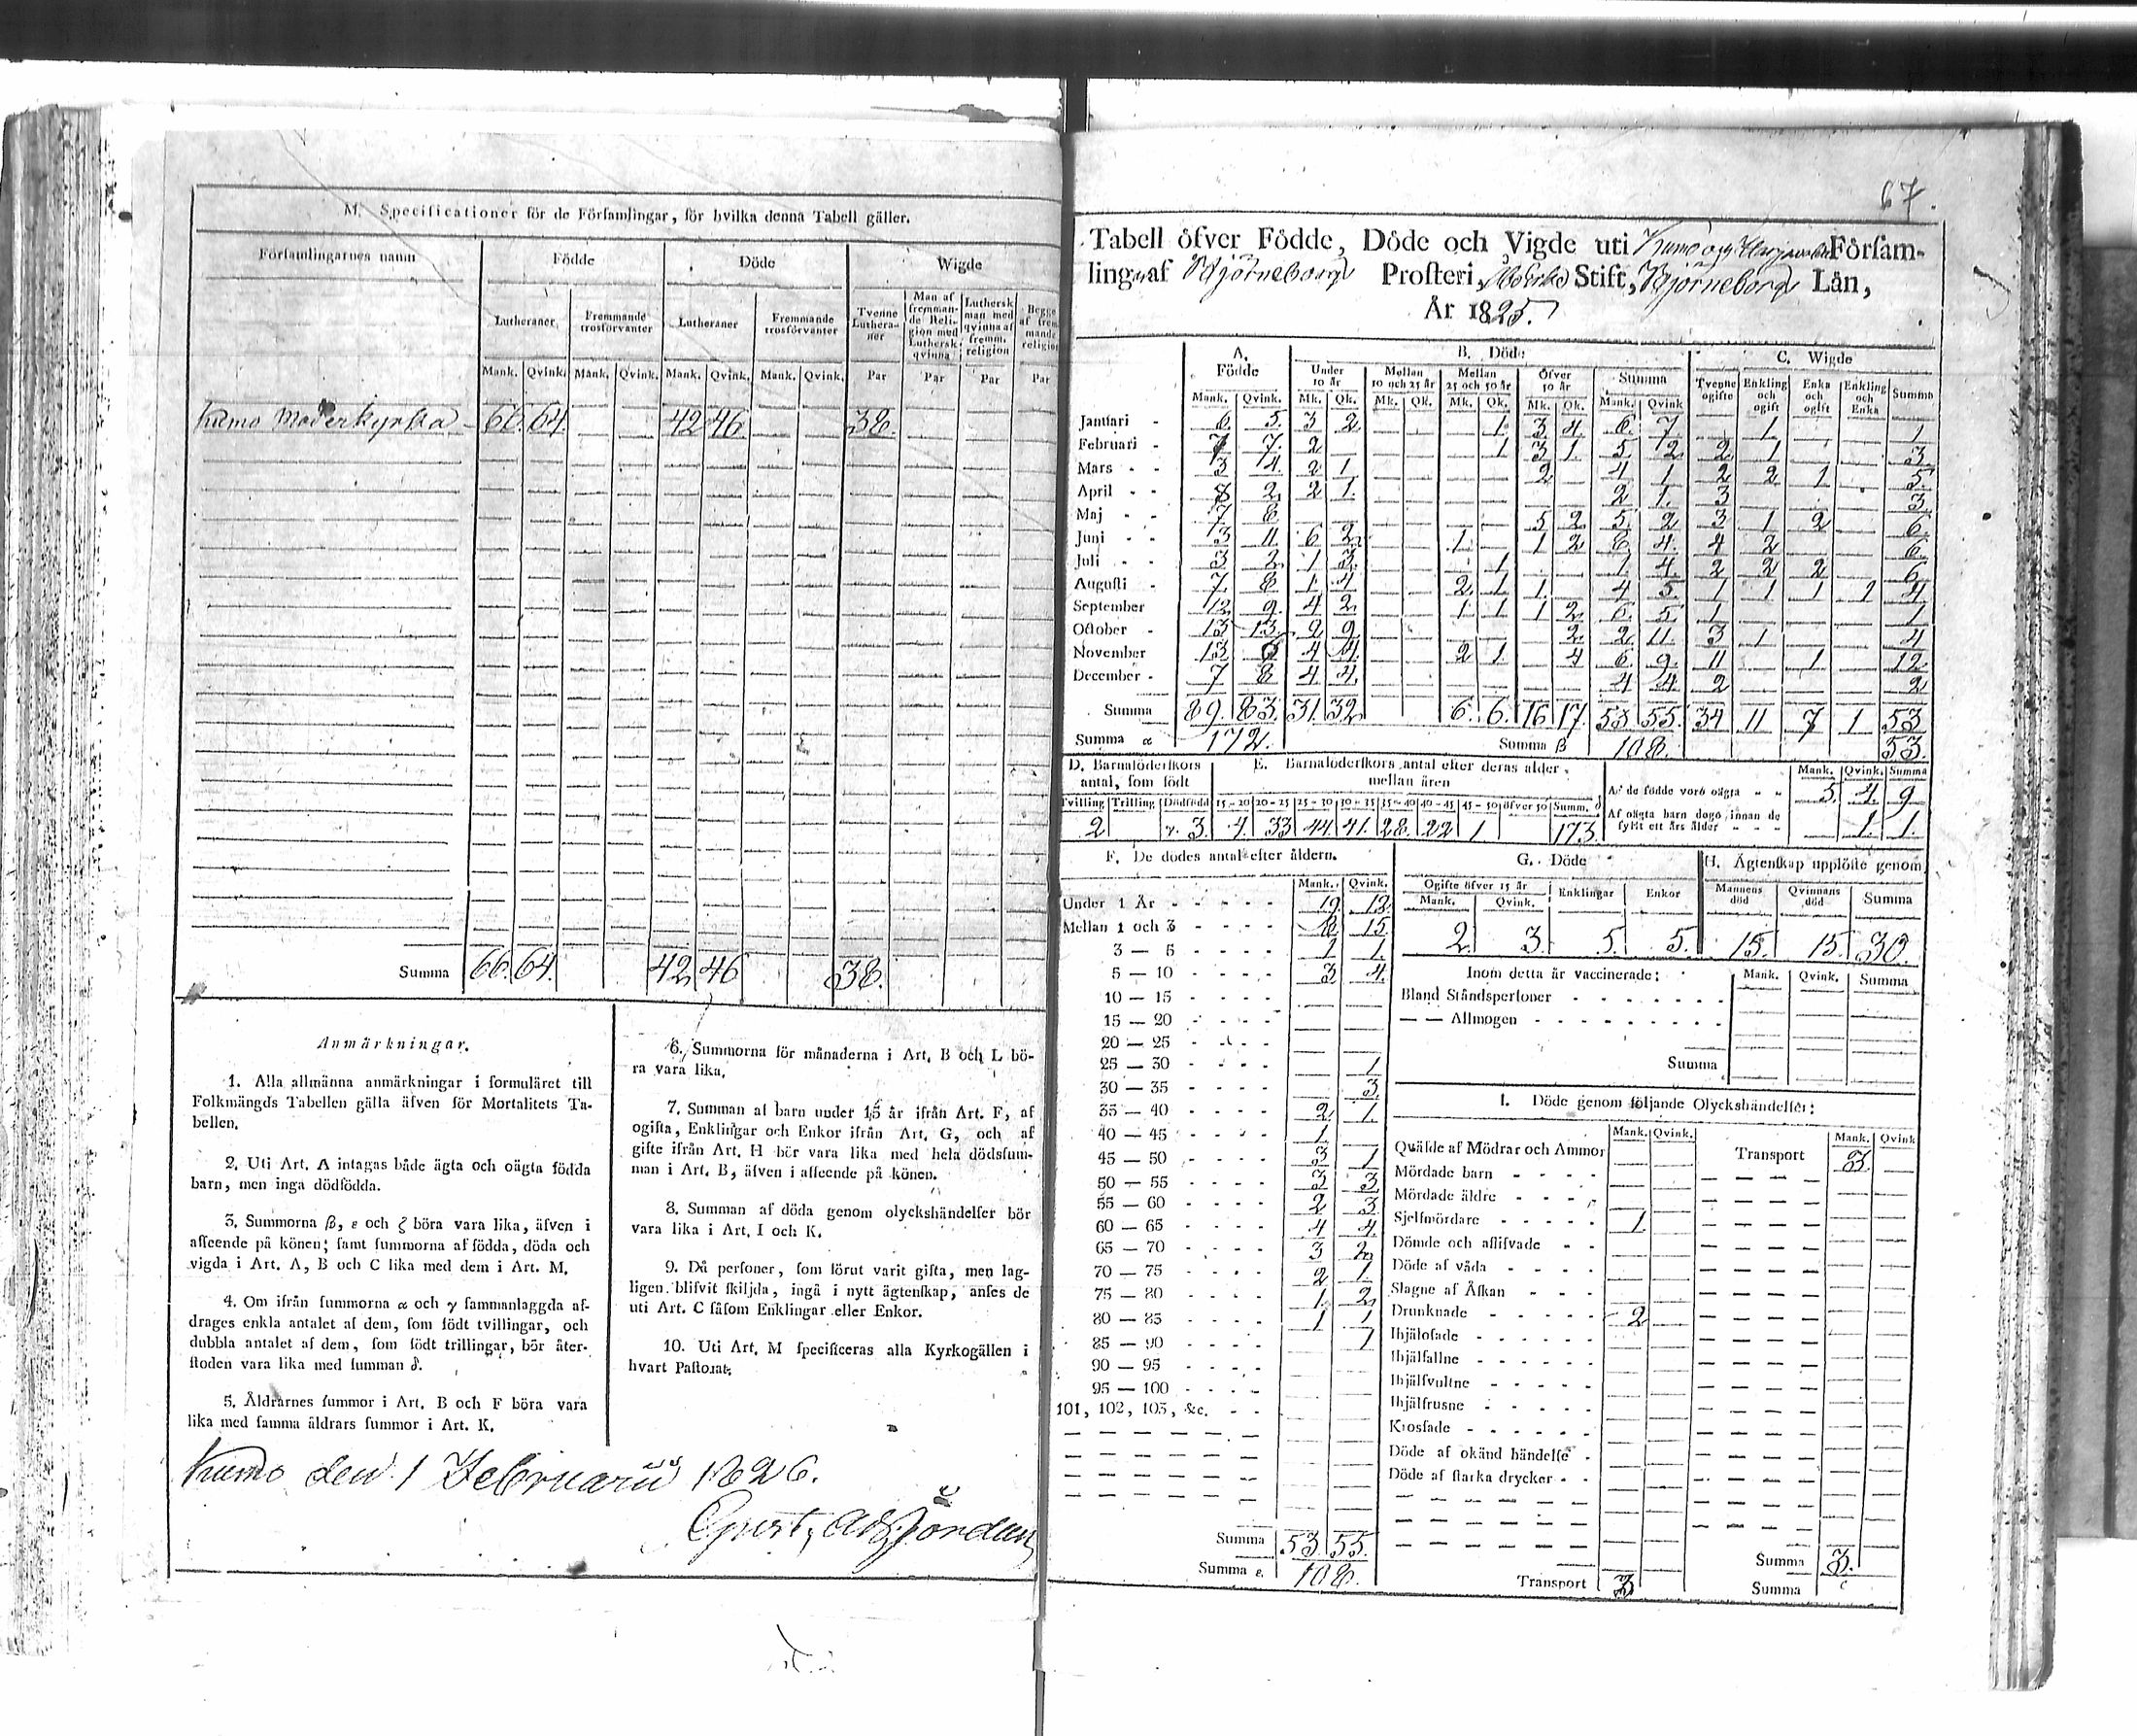 M. Specificationer för de Församlingar, för hvilka denna Tabell gäller.
Församlingarnes namn Födde Döde Wigde
Lutheraner Fremmande trosförvanter Lutheraner Fremmande trosförvanter Tvenne Lutheraner Man af fremmande Religion med Luthersk qvinna Luthersk man med qvinna af fremm. religion Begge af fremmande religion
Mank. Qvink. Mank. Qvink. Mank. Qvink. Mank. Qvink. Par Par Par Par
Kumo Moderkyrka 66. 64. 42 46. 38.
Summa 66. 64. 42 46 38.
Anmärkningar.
1. Alla allmänna anmärkningar i formuläret till
Folkmängds Tabellen gälla äfven för Mortalitets Ta-
bellen.
2. Uti Art. A intagas både ägta och oägta födda
barn, men inga dödfödda.
3. Summorna β, ε och ζ böra vara lika, äfven i
afseende på könen; samt summorna af födda, döda och
vigda i Art. A, B och C lika med dem i Art. M.
4. Om ifrån summorna α och γ sammanlaggda af-
drages enkla antalet af dem, som födt tvillingar, och
dubbla antalet af dem, som födt trillingar, bör åter-
stoden vara lika med summan δ.
5. Åldrarnes summor i Art. B och F böra vara
lika med samma åldrars summor i Art. K.
6. Summorna för månaderna i Art. B och L bö-
ra vara lika.
7. Summan af barn under 15 år ifrån Art. F, af
ogifta, Enklingar och Enkor ifrån Art. G, och af
gifte ifrån Art. H bör vara lika med hela dödssum-
man i Art. B, äfven i afseende på könen.
8. Summan af döda genom olyckshändelser bör
vara lika i Art. I och K.
9. Då personer, som förut varit gifta, men lag-
ligen blifvit skiljda, ingå i nytt ägtenskap, anses de
uti Art. C såsom Enklingar eller Enkor.
10. Uti Art. M specificeras alla Kyrkogällen i
hvart Pastorat.
Kumo den 1 Februarii 1826.
67.
Tabell öfver Födde, Döde och Vigde uti Kumo och Församling
af Björneborgs Prosteri, Stift, Björneborgs Län,
År 1825.
A. Födde B. Döde C. Wigde
Under 10 år Mellan 10 och 25 år Mellan 25 och 50 år Öfver 50 år Summa Tvenne ogifte Enkling och ogift Enka och ogift Enkling och Enka Summa
Mank. Qvink. Mk. Qk. Mk. Qk. Mk. Qk. Mk. Qk. Mank. Qvink
Januari 6. 5. 3 2 1. 3 4. 6. 7 1 1
Februari 7 7. 2 1 3 1. 5. 2 2 1 3
Mars 3 4. 2 1 2 4 1 2 2 1 5
April 2. 2 1. 2 1. 3 3.
Maj 7 8 5 2 5. 2 3 1 2 6.
Juni 13 11. 6 2. 1 1 2 8 4. 4 2 6.
Juli 3 2. 1 3. 1 1 4. 2 2 2 6.
Augusti 7. 8 1 4 2. 1 1. 4 5 1 1 1 1 4
September 12. 9. 4 2. 1 1 1 2 6. 5. 1 1
October 13 13. 2 9. 2. 2 11. 3 1 4
November 13. 4 4. 2 1. 4 6. 9. 11 1 12
December 7 8 4. 4. 4 4. 2 2
Summa 89. 83. 31. 32 6. 6. 16 17. 53 55. 34 11 7 1 53
Summa α 172. Summa β 108. 53.
D. Barnaföderskors antal, som födt
Tvilling Trilling Dödfödd
2 γ. 3.
E. Barnaföderskors antal efter deras ålder mellan åren
15-20 20-25 25-30 30-35 35-40 40-45 45-50 öfver 50 Summ. δ
4. 33 44. 41. 28. 22 1 173.
Mank. Qvink. Summa
Af de födde voro oägta 5. 4. 9
Af oägta barn dogo innan de fyllt ett års ålder 1. 1.
F. De dödes antal efter åldern.
Mank. Qvink.
Under 1 År 19. 12
Mellan 1 och 3 8. 15.
3 — 5 1 1.
5 — 10 3 4.
10 — 15
15 — 20
20 — 25
25 — 30 1
30 — 35 3.
35 — 40 2 1.
40 — 45 1.
45 — 50 3 1
50 — 55 3 3.
55 — 60 2 3
60 — 65 4 4.
65 — 70 3 2.
70 — 75 2 1.
75 — 80 1. 2
80 — 85 1 1
85 — 90 1
90 — 95
95 — 100
101, 102, 103, &c.
Summa 53. 55.
Summa ε. 108.
G. Döde
Ogifte öfver 15 år Enklingar Enkor
Mank. Qvink.
2. 3. 5. 5.
H. Ägtenskap upplöste genom
Mannens död Qvinnans död Summa
15. 15. 30.
Inom detta år vaccinerade: Mank. Qvink. Summa
Bland Ståndspersoner
— — Allmogen
Summa
I. Döde genom följande Olyckshändelser:
Mank. Qvink. Mank. Qvink
Qwäfde af Mödrar och Ammor Transport 3.
Mördade barn
Mördade äldre
Sjelfmördare 1
Dömde och aflifvade
Döde af våda
Slagne af Åskan
Drunknade 2
Ihjälosade
Ihjälfallne
Ihjälsvultne
Ihjälfrusne
Krossade
Döde af okänd händelse
Döde af starka drycker
Summa 3.
Transport 3 Summa ζ